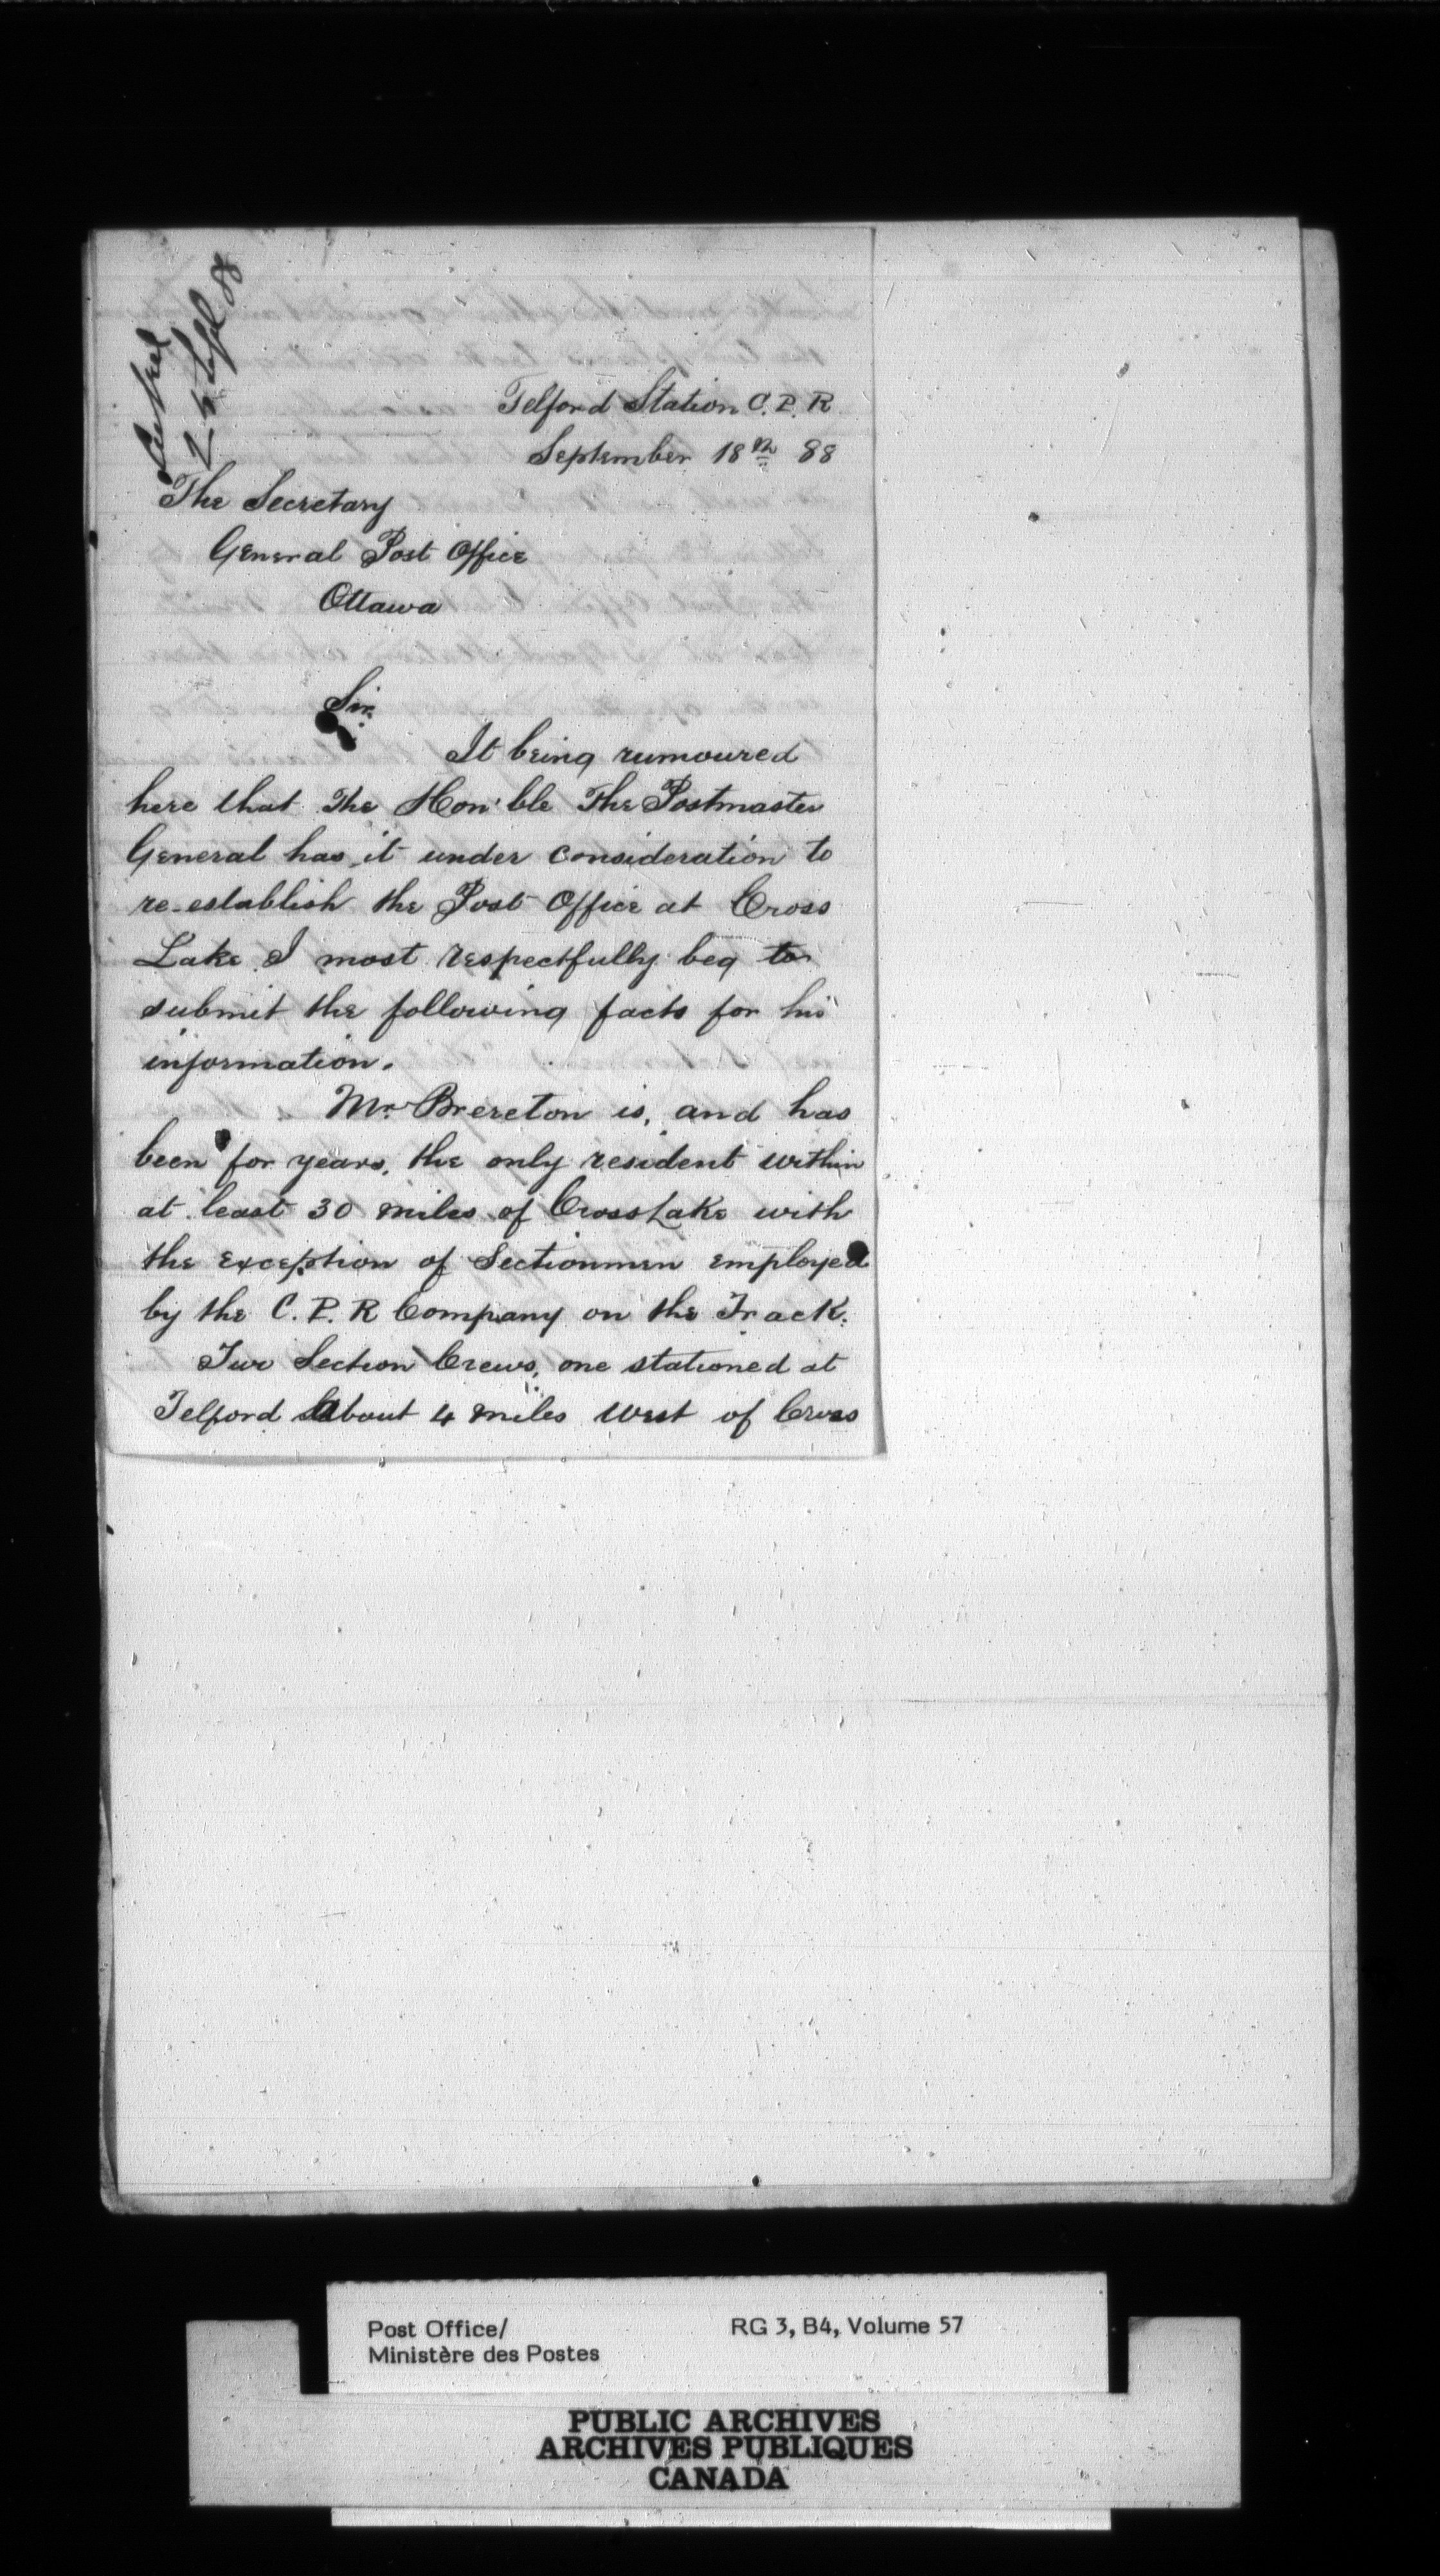 24 Sept 88
Telford Station C. P. R
September 18th 88
The Secretary
General Post Office
Ottawa
Sir.
It being rumoured
here that The Hon'ble The Postmaster
General has it under consideration to
re-establish the Post Office at Cross
Lake I most respectfully beg to
submit the following facts for his
information.
Mr Brereton is, and has
been for years, the only resident within
at least 30 miles of Cross Lake with
the exception of Sectionmen employed
by the C. P. R Company on the Track.
Two Section Crews, one stationed at
Telford about 4 miles west of Cross
Post Office/
Ministère des Postes
RG 3, B4, Volume 57
PUBLIC ARCHIVES
ARCHIVES PUBLIQUES
CANADA